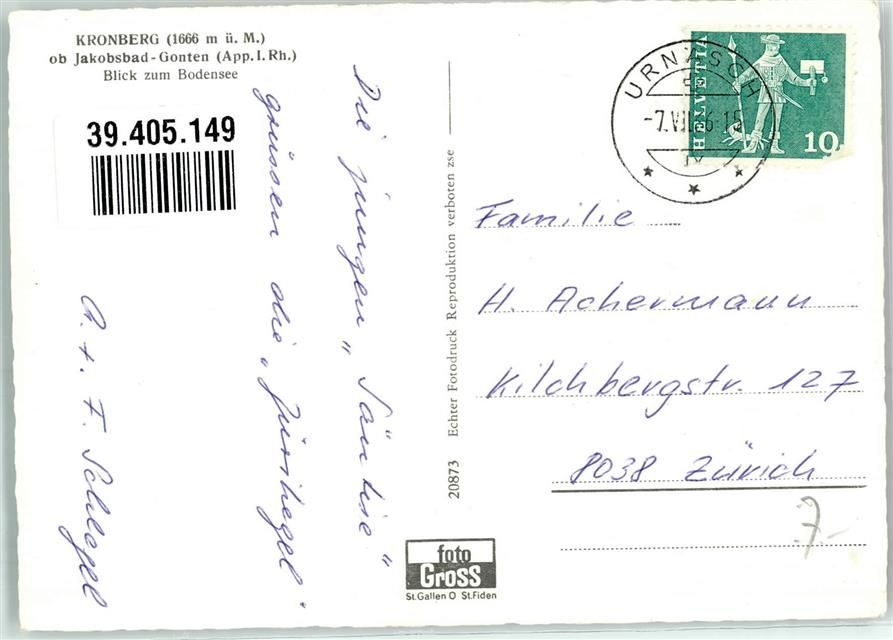 KRONBERG (1666 m ü. M.)
ob Jakobsbad-Gonten (App. I. Rh.)
Blick zum Bodensee
39.405.149
Die jungen „
grüssen die „
A. + F. Schlegel
20873 Echter Fotodruck Reproduktion verboten zse
foto
Gross
St.Gallen O St.Fiden
URNÄSCH
HELVETIA
10
Familie
H. Achermann
Kilchbergstr. 127
8038 Zürich
7-